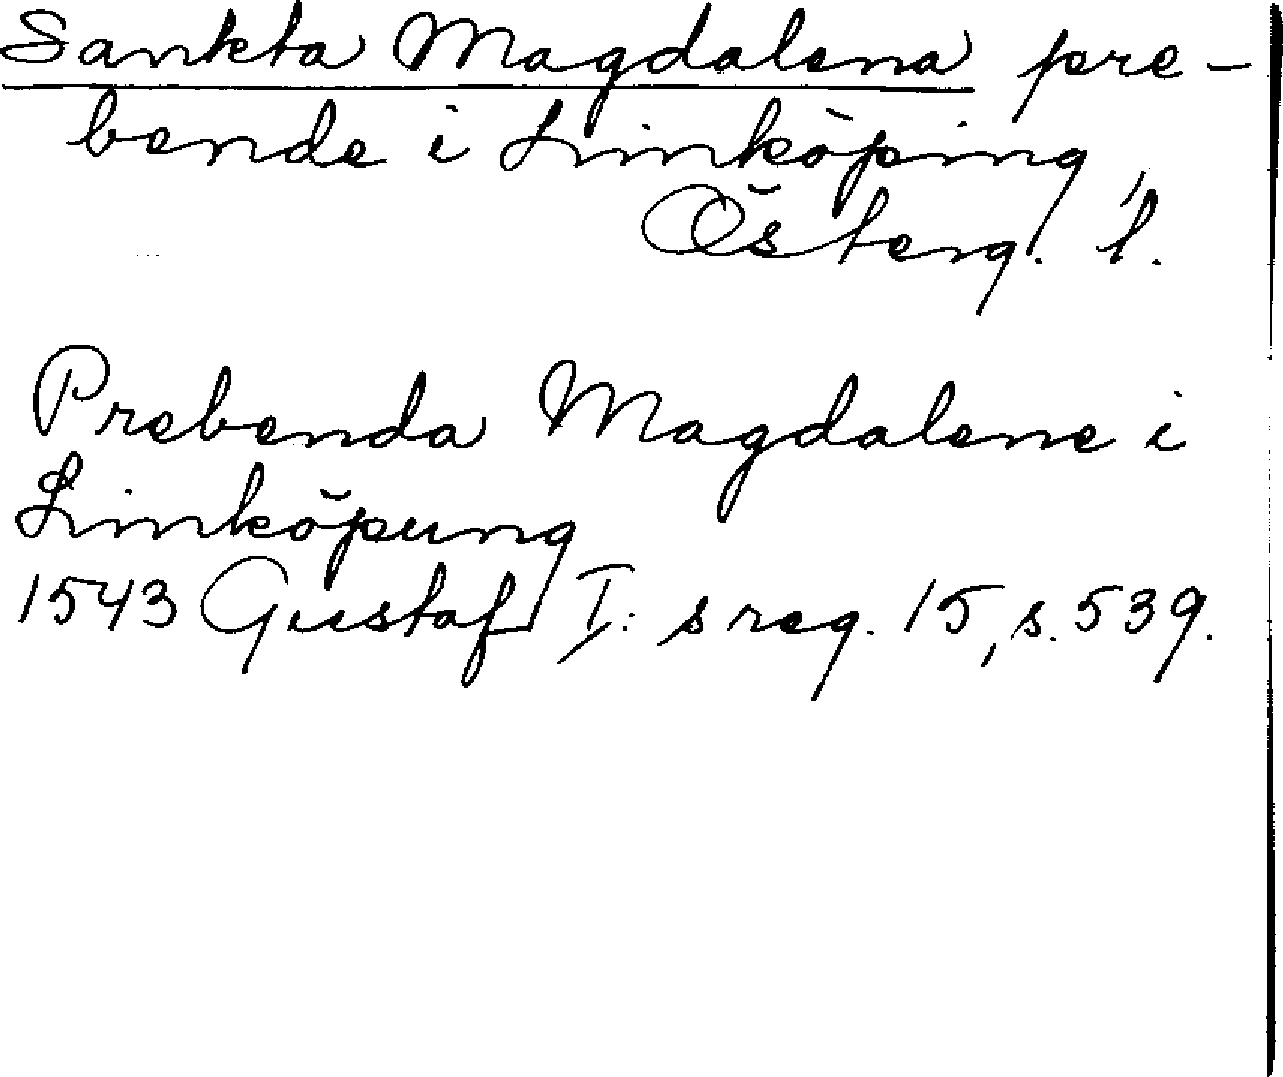 Sankta Magdalena pre-
bende i Linköping
Österg. l.
Prebenda Magdalene i
Linköpung
1543 Gustaf I: s reg. 15, s. 539.